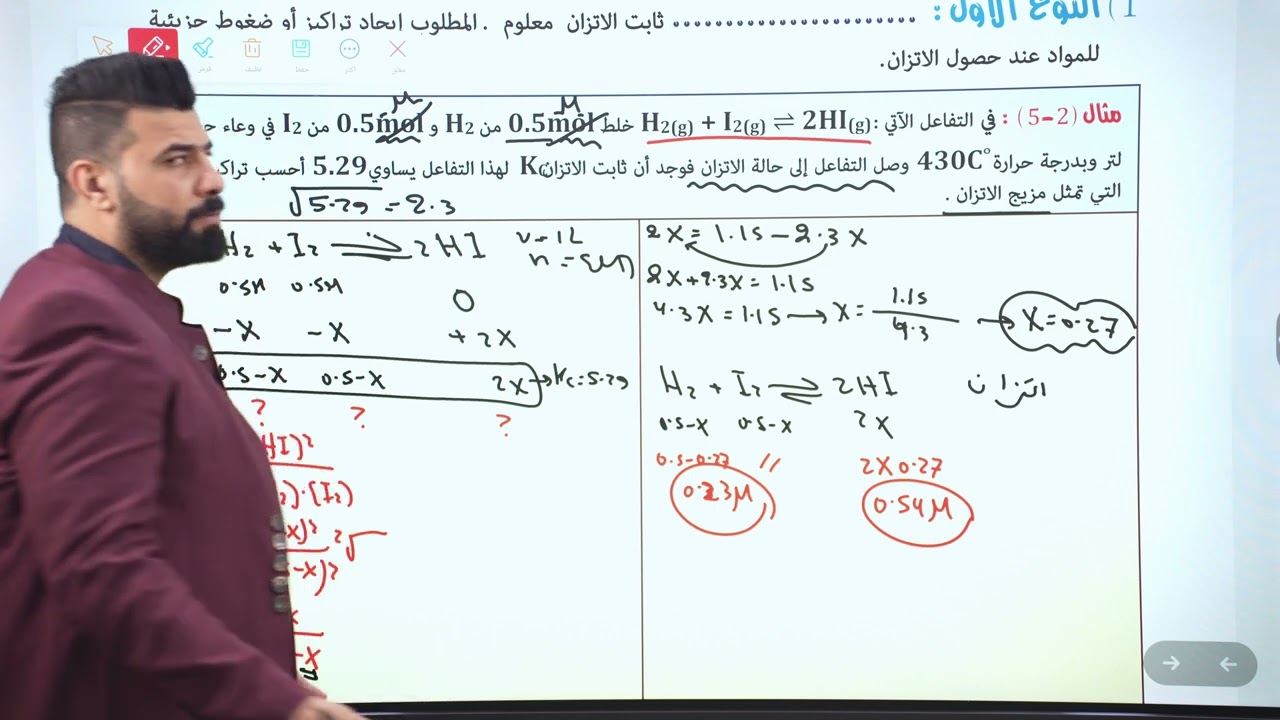 1) النوع الأول : ........................ ثابت الاتزان معلوم . المطلوب ايجاد تراكيز أو ضغوط جزيئية
للمواد عند حصول الاتزان.
مثال (2-5) : في التفاعل الآتي : H₂(g) + I₂(g) ⇌ 2HI(g) خلط 0.5mol من H₂ و 0.5mol من I₂ في وعاء
M M
لتر وبدرجة حرارة 430C° وصل التفاعل إلى حالة الاتزان فوجد أن ثابت الاتزان K لهذا التفاعل يساوي 5.29 أحسب
التي تمثل مزيج الاتزان .
√5.29 = 2.3
H₂ + I₂ ⇌ 2HI
V=1L
0.5M 0.5M 0
-X -X +2X
0.5-X 0.5-X 2X → Kc=5.29
? ? ?
HI)²
)·(I₂)
X)² ²√
-X)²
X
-X
2X = 1.15 - 2.3X
2X+2.3X = 1.15
4.3X = 1.15 → X = 1.15/4.3 → X=0.27
H₂ + I₂ ⇌ 2HI اتزان
0.5-X 0.5-X 2X
0.5-0.27 // 2X0.27
0.23M 0.54M